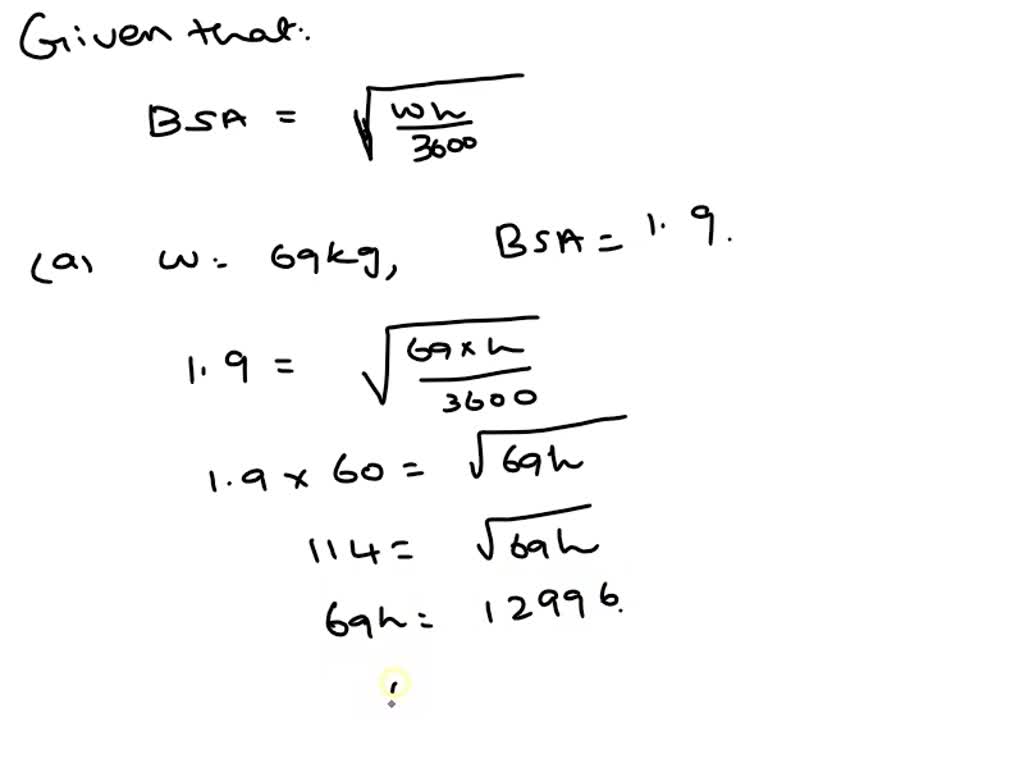 Given that:
BSA = √(wh/3600)
(a) w = 69kg, BSA = 1.9.
1.9 = √(69×h/3600)
1.9 × 60 = √69h
114 = √69h
69h = 12996.